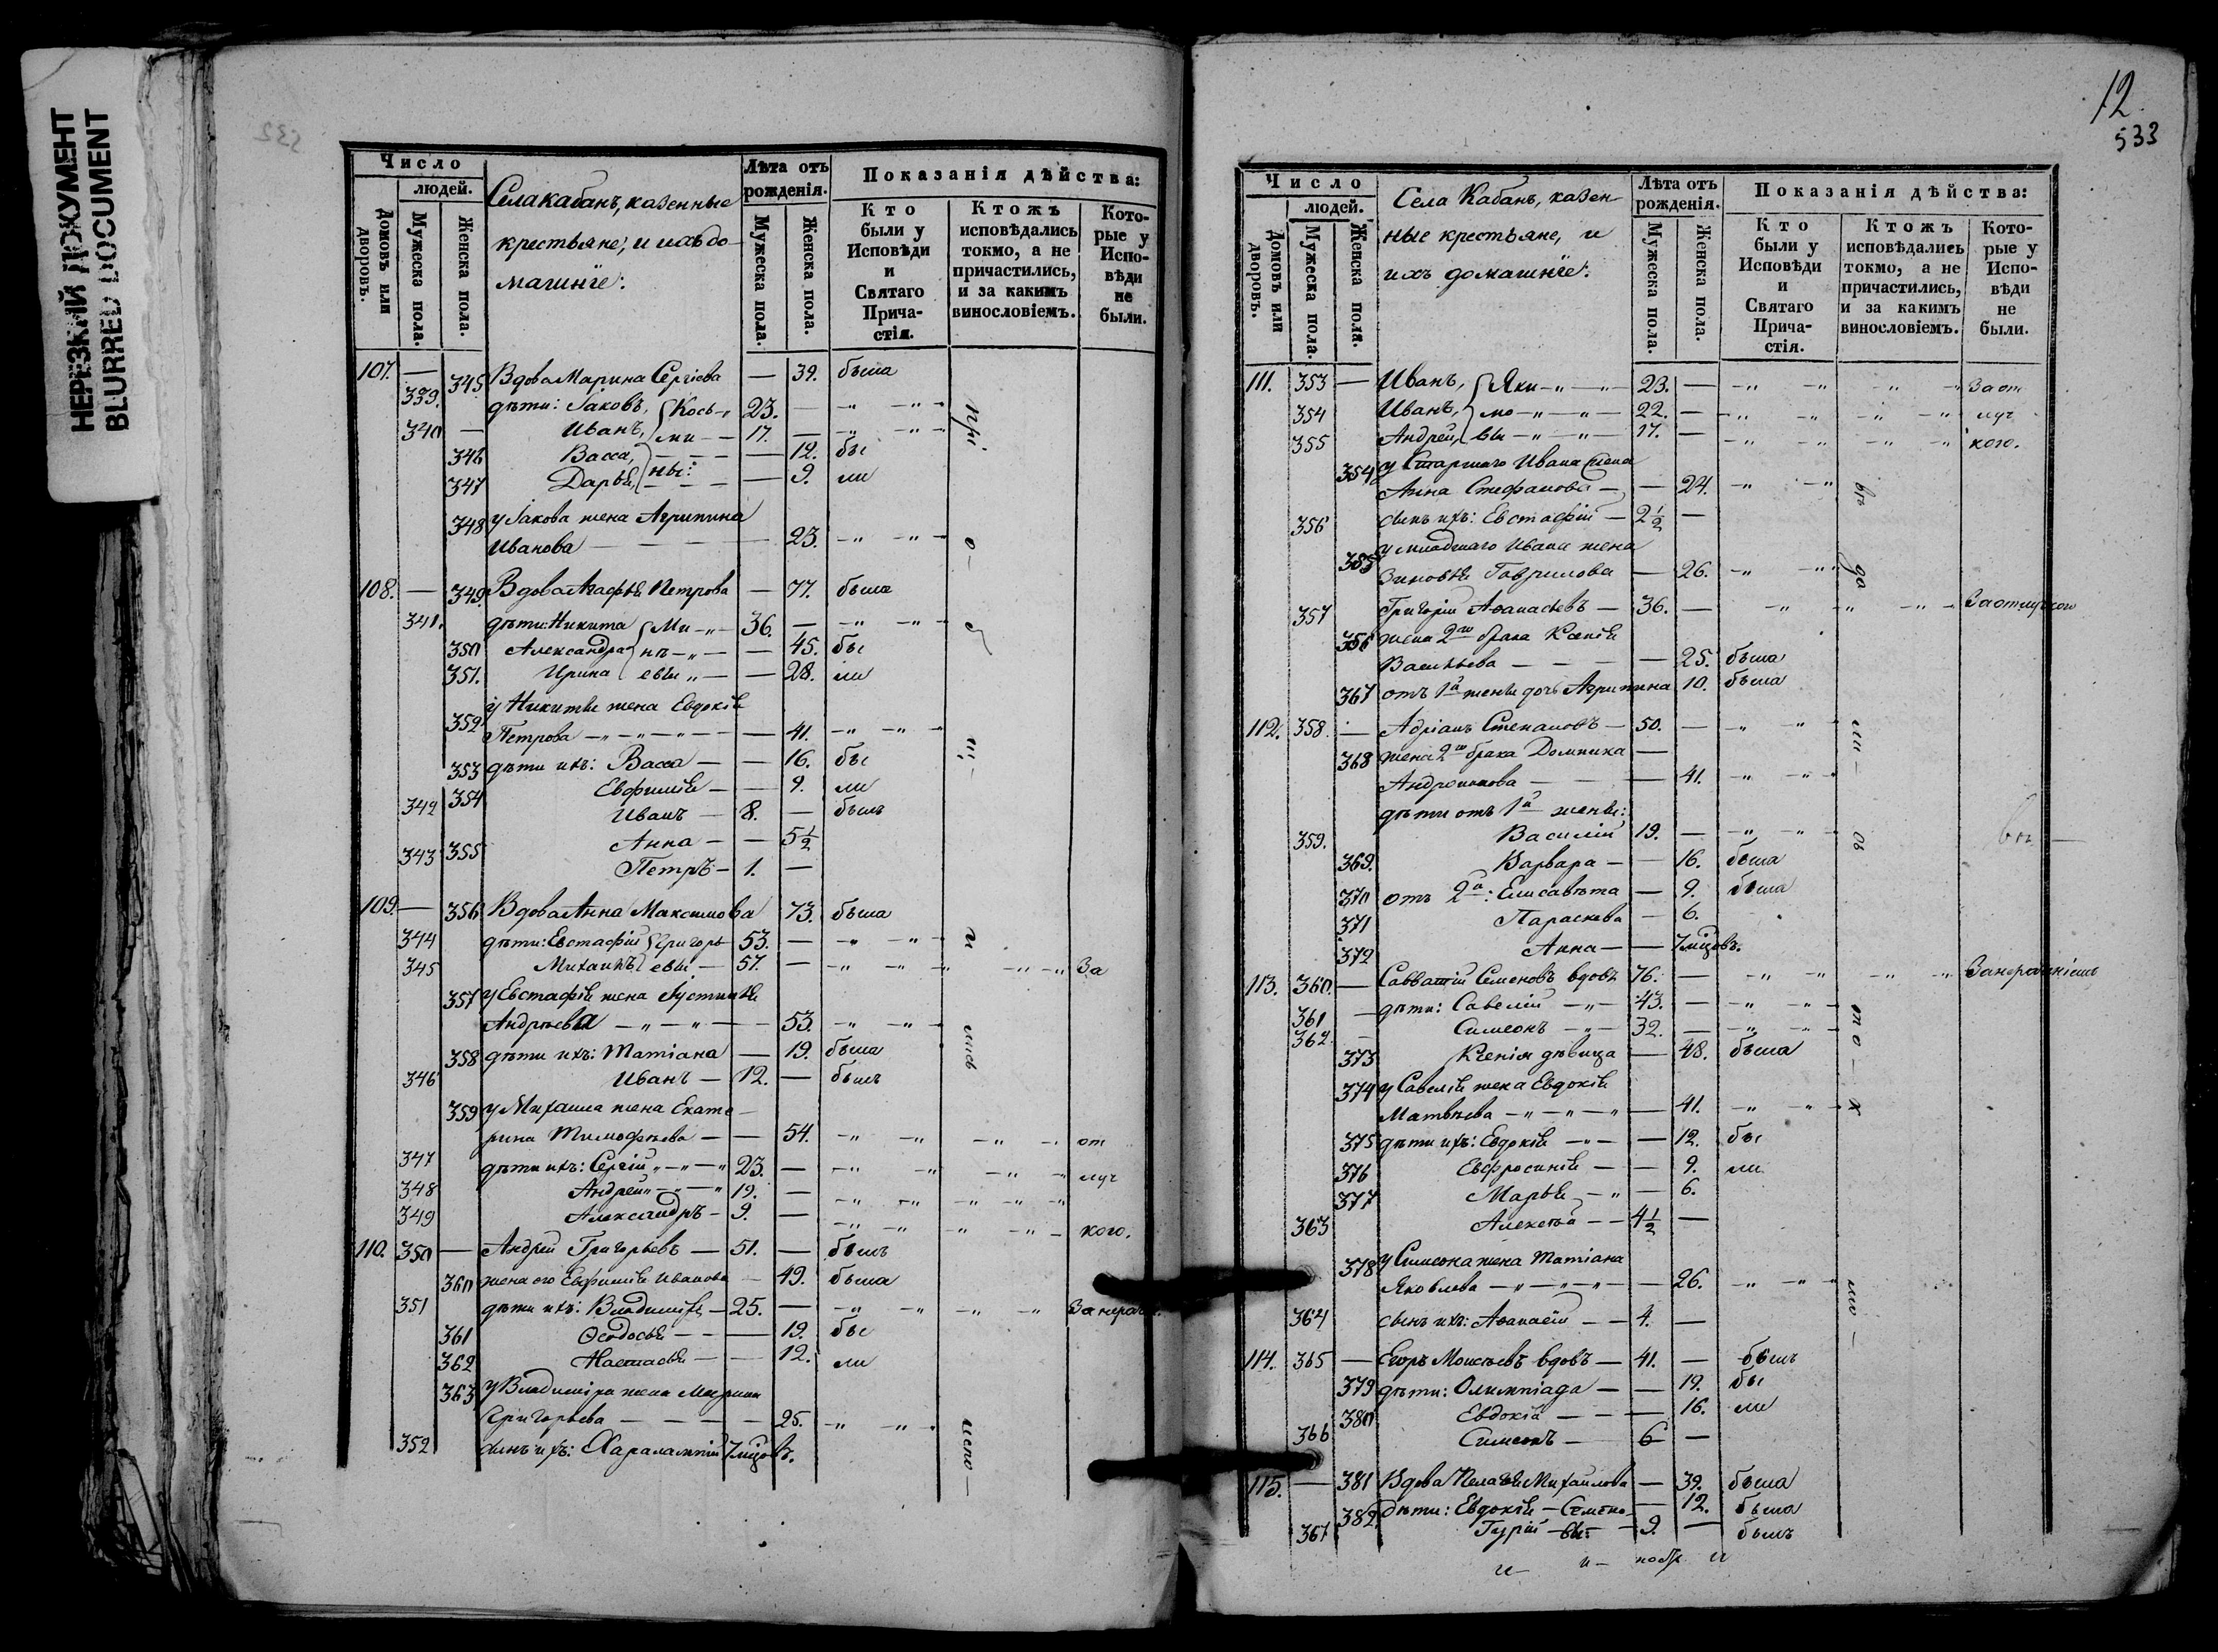 НЕРЕЗКИЙ ДОКУМЕНТ
BLURRED DOCUMENT
532
Число
людей.
Домовъ или дворовъ.
Мужеска пола.
Женска пола.
Села Кабанъ, казенные
крестьяне, и ихъ до-
машнїе:
Лѣта отъ
рожденія.
Мужеска пола.
Женска пола.
Показанія дѣйства:
Кто
были у
Исповѣди
и
Святаго
Прича-
стія.
Ктожъ
исповѣдались
токмо, а не
причастились,
и за какимъ
винословіемъ.
Кото-
рые у
Испо-
вѣди
не
были.
107. — 345 Вдова Марина Сергіева — 39. была
339. дѣти: Іаковъ, Кось- 23. —
340 — Иванъ, ми- 17. —
346 Васса, — 12. бы
347 Дарья, ны: — 9. ли
348 у Іакова жена Агрипина
Иванова — 23.
108. — 349. Вдова Агафья Петрова — 77. была
341. дѣти: Никита Ми- 36. —
350 Александра ки- — 45. бы
351. Ирина евы — 28. ли
у Никиты жена Евдокія
352 Петрова — 41.
353 дѣти ихъ: Васса — 16. бы
354 Евфимія — 9. ли
342 Иванъ — 8. — былъ
355 Анна — 5½
343 Петръ — 1. —
109. — 356 Вдова Анна Максимова 73. была
344 дѣти: Евстафій Григорь- 53. —
345 Михаилъ евы — 57. — За
357 у Евстафія жена Іустинія
Андреева — 53.
358 дѣти ихъ: Татіана — 19. была
346 Иванъ — 12. — былъ
359 у Михаила жена Екате-
рина Тимофѣева — 54. от
347 дѣти ихъ: Сергій 23. — луч
348 Андрей 19. —
349 Александръ — 9. — кого.
110. 350 — Андрей Григорьевъ — 51. — былъ
360 жена его Евфимія Иванова — 49. была
351 дѣти ихъ: Владиміръ — 25. —
361 Ѳеодосья — 19. бы
362 Настасья — 12. ли
363 у Владиміра жена Марина
Григорьева — 25.
352 сынъ ихъ: Харалампій 7 мцовъ.
12
533
Число
людей.
Домовъ или дворовъ.
Мужеска пола.
Женска пола.
Села Кабанъ, казен-
ные крестьяне, и
ихъ домашнїе:
Лѣта отъ
рожденія.
Мужеска пола.
Женска пола.
Показанія дѣйства:
Кто
были у
Исповѣди
и
Святаго
Прича-
стія.
Ктожъ
исповѣдались
токмо, а не
причастились,
и за какимъ
винословіемъ.
Кото-
рые у
Испо-
вѣди
не
были.
111. 353 — Иванъ, Яки- 23. — За от
354 Иванъ, мо- 22. — луч
355 Андрей, вы 17. — кого.
354 у Старшаго Ивана жена
Анна Стефанова — 24.
356 сынъ ихъ: Евстафій — 2½ —
у младшаго Ивана жена
355 Зиновья Гаврилова — 26.
357 Григорій Аѳанасьевъ — 36. — За отлучкою
356 жена 2го брака Ксенія
Васильева — 25. была
367 отъ 1й жены дочь Агрипина 10. была
112. 358. — Адріанъ Степановъ — 50. —
368 жена 2го брака Домника —
Андроникова — 41.
дѣти отъ 1й жены:
359. Василій 19. —
369. Варвара — 16. была
370 отъ 2й: Елисавѣта — 9. была
371 Параскева — 6.
372 Анна — 7 мцовъ.
113. 360. — Савватій Семеновъ вдовъ 76. —
361 — дѣти: Савелій 43. —
362. Симеонъ 32. —
373 Ксенія дѣвица — 48. была
374 у Савелія жена Евдокія
Матвѣева — 41.
375 дѣти ихъ: Евдокія — 12. бы
376 Евфросинія — 9. ли
377 Марья — 6.
363 Алексѣй — 4½ —
378 у Симеона жена Татіана
Яковлева — 26.
364 сынъ ихъ: Аѳанасій — 4. —
114. 365 — Егоръ Моисѣевъ вдовъ — 41. — былъ
379 дѣти: Олимпіада — 19. бы
380 Евдокія — 16. ли
366 Симеонъ — 6 —
115. — 381 Вдова Пелагія Михаилова — 39. была
382. Дѣти: Евдокія — Семено- — 12. была
367 Гурій — вы — 9. — былъ